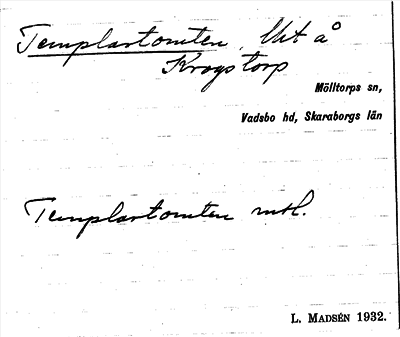 Templartomten, Urt å
Krogstorp
Mölltorps sn,
Vadsbo hd, Skaraborgs län
Templartomten mtl.
L. MADSÉN 1932.